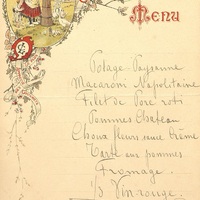 Menu
Potage Paysanne
Macaroni Napolitaine
Filet de Porc roti
Pommes Chateau
Choux fleurs sauce Crème
Tarte aux pommes
Fromage
Vin rouge.